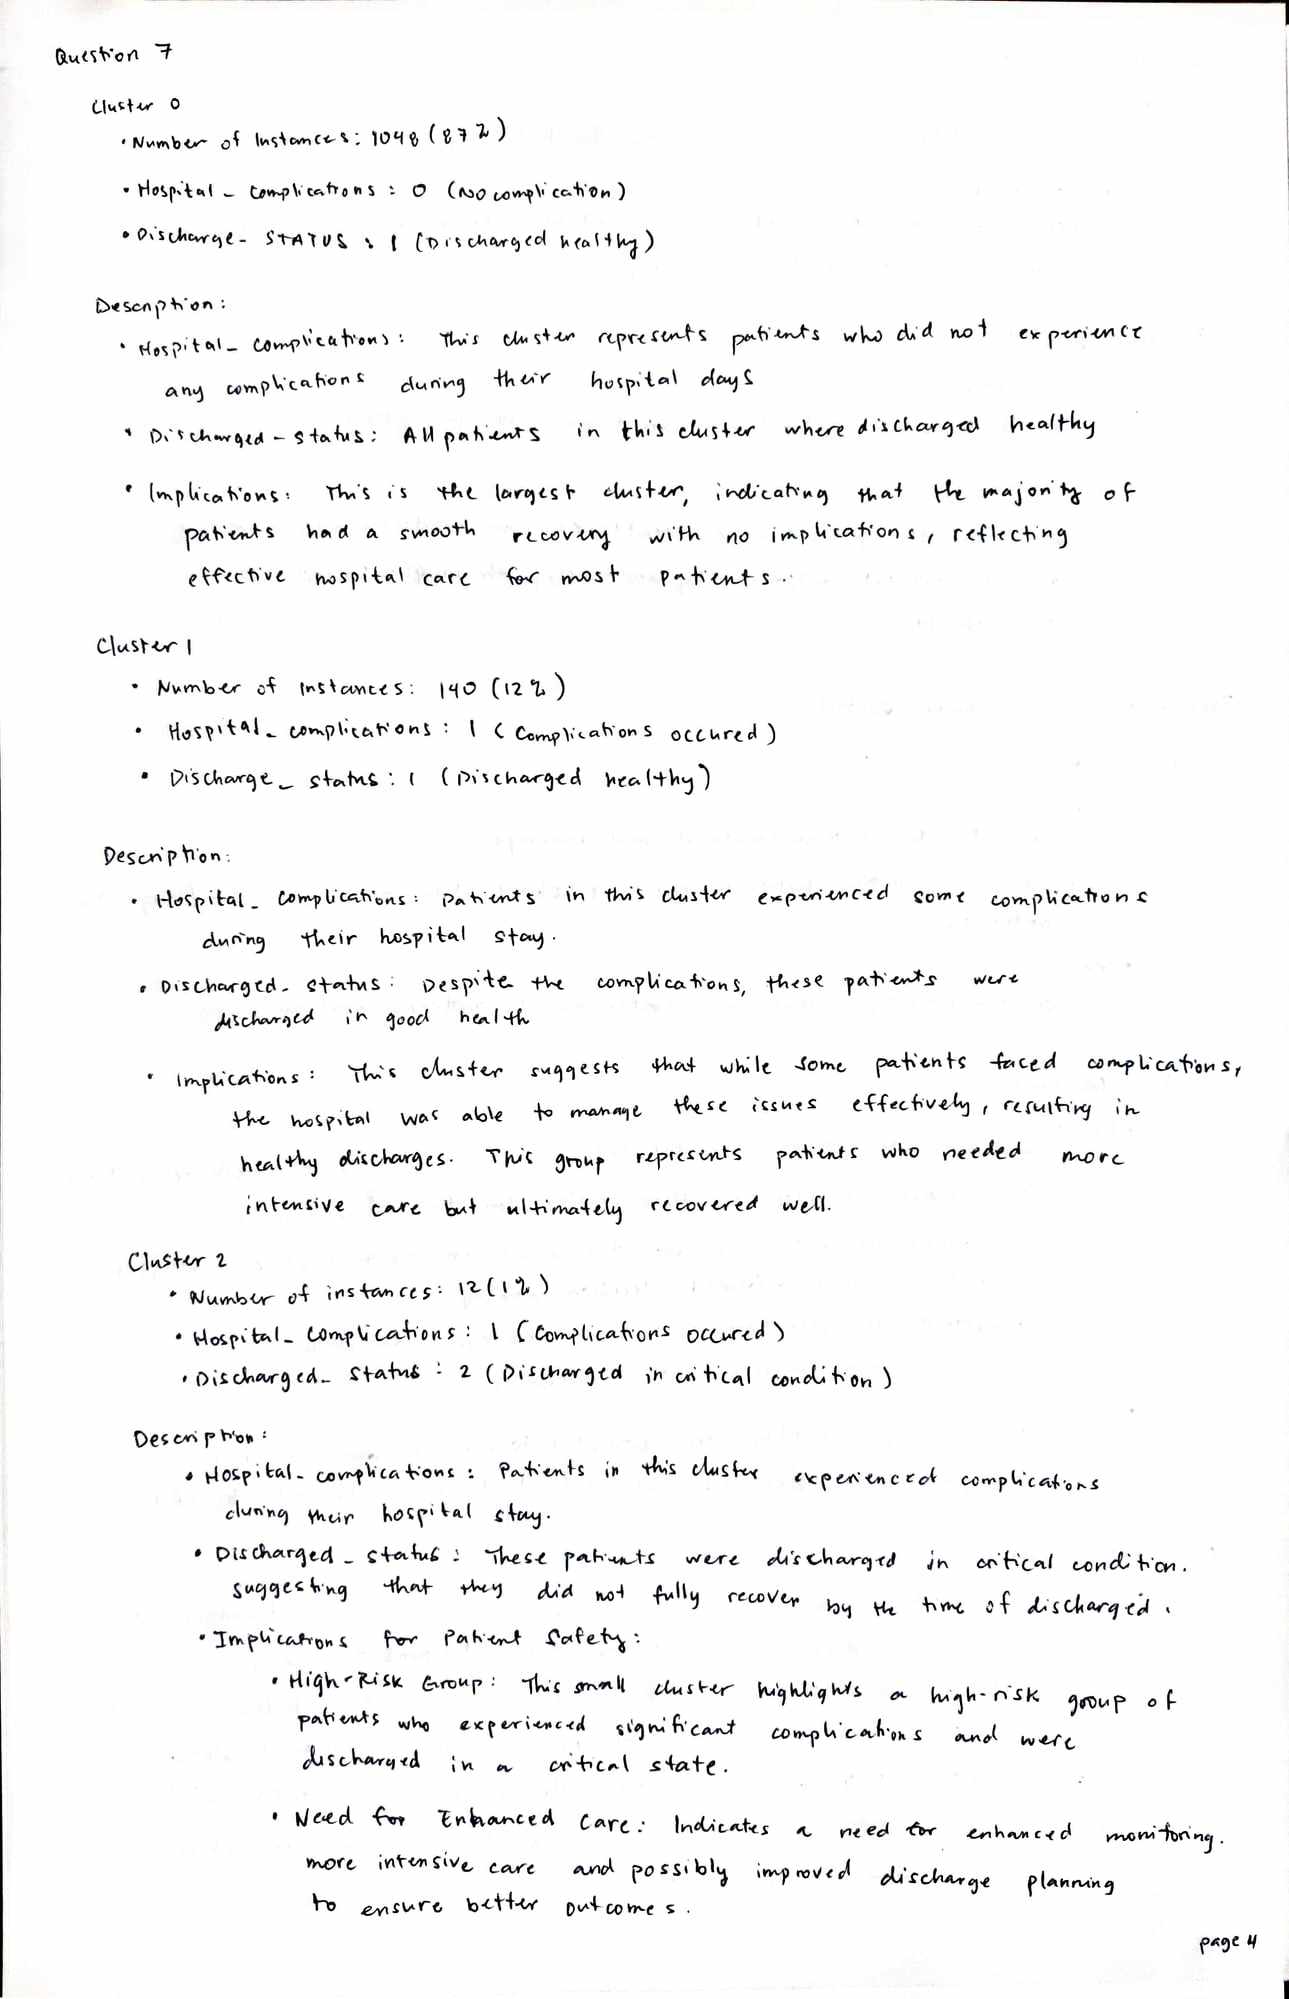 Question 7
Cluster 0
• Number of Instances: 1048 (87%)
• Hospital_complications: 0 (No complication)
• Discharge_STATUS: 1 (Discharged healthy)
Description:
• Hospital_complications: This cluster represents patients who did not experience
any complications during their hospital days
• Discharged_status: All patients in this cluster where discharged healthy
• Implications: This is the largest cluster, indicating that the majority of
patients had a smooth recovery with no implications, reflecting
effective hospital care for most patients.
Cluster 1
• Number of Instances: 140 (12%)
• Hospital_complications: 1 (Complications occured)
• Discharge_status: 1 (Discharged healthy)
Description:
• Hospital_complications: Patients in this cluster experienced some complications
during their hospital stay.
• Discharged_status: Despite the complications, these patients were
discharged in good health
• Implications: This cluster suggests that while some patients faced complications,
the hospital was able to manage these issues effectively, resulting in
healthy discharges. This group represents patients who needed more
intensive care but ultimately recovered well.
Cluster 2
• Number of instances: 12 (1%)
• Hospital_complications: 1 (Complications occured)
• Discharged_status: 2 (Discharged in critical condition)
Description:
• Hospital_complications: Patients in this cluster experienced complications
during their hospital stay.
• Discharged_status: These patients were discharged in critical condition.
suggesting that they did not fully recover by the time of discharged.
• Implications for Patient Safety:
• High-Risk Group: This small cluster highlights a high-risk group of
patients who experienced significant complications and were
discharged in a critical state.
• Need for Enhanced Care: Indicates a need for enhanced monitoring.
more intensive care and possibly improved discharge planning
to ensure better outcomes.
page 4